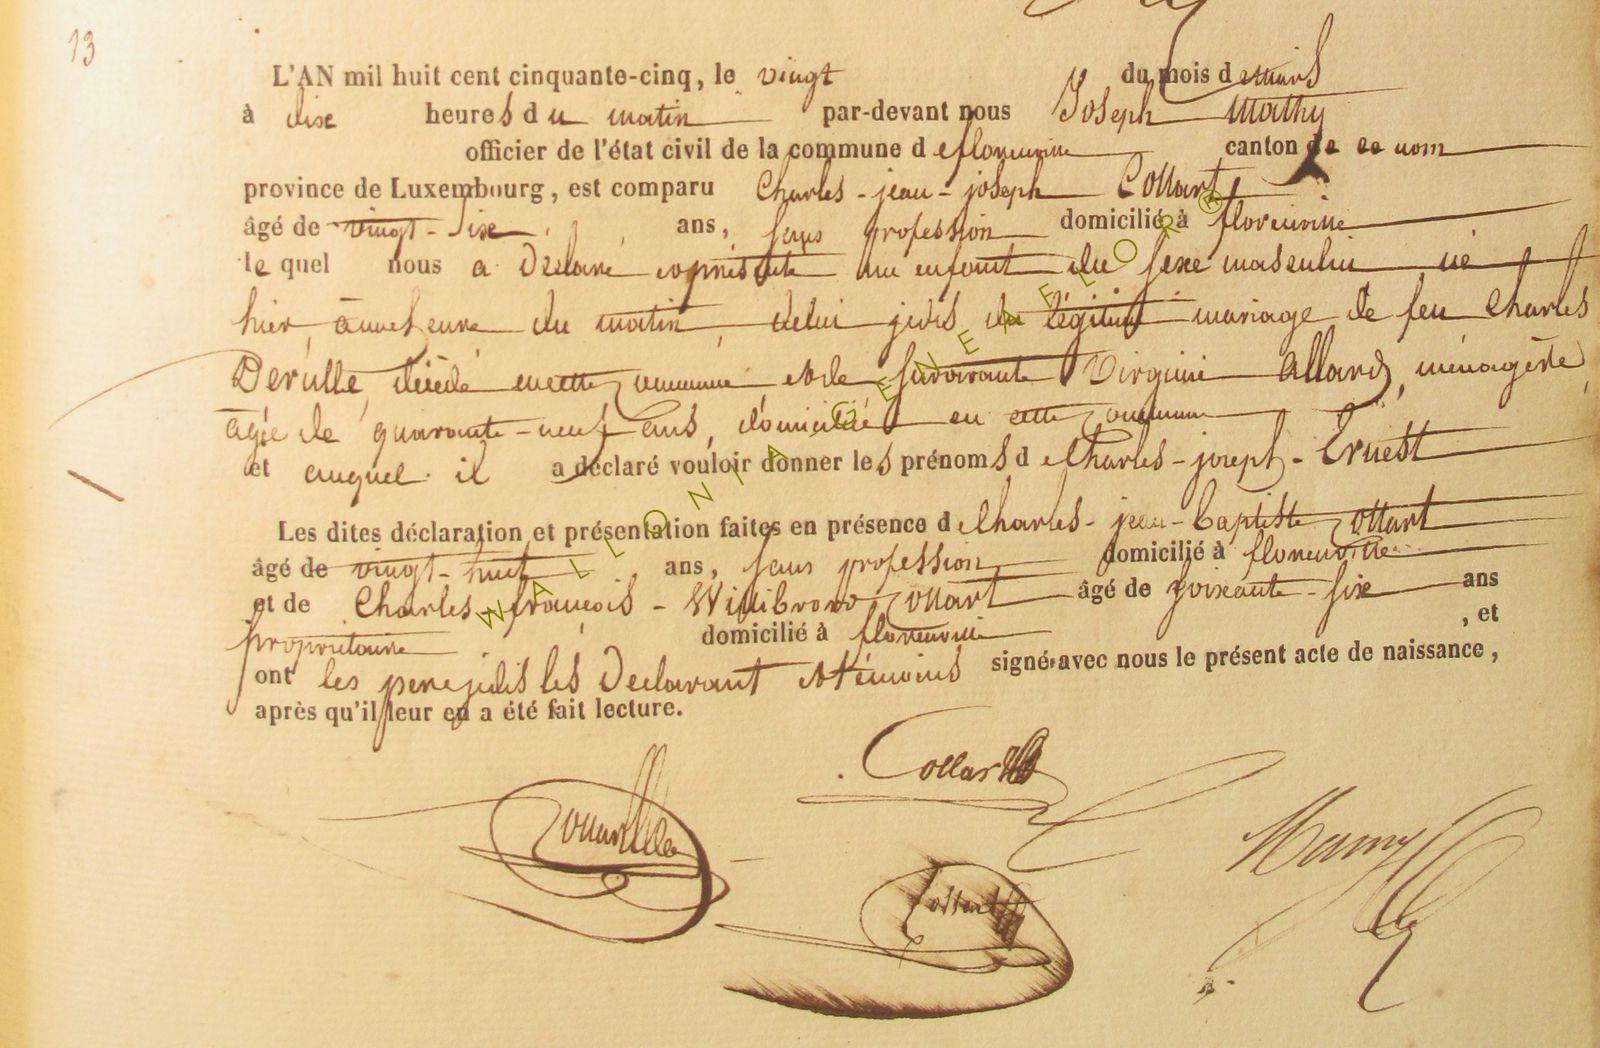 13
L'AN mil huit cent cinquante-cinq, le vingt du mois de mars
à dix heures du matin par-devant nous Joseph Mathy
officier de l'état civil de la commune de florenville canton de ce nom
province de Luxembourg, est comparu Charles-jean-joseph Collart
âgé de vingt-six ans, sans profession domicilié à florenville
lequel nous a Déclaré et présenté un enfant du sexe masculin né
hier, à une heure du matin, du légitime mariage de feu Charles
Derulle, décédé en cette commune et de survivante Virginie Allard, ménagère,
âgée de quarante-neuf ans, domiciliée en cette commune
et auquel il a déclaré vouloir donner les prénoms de Charles-joseph-Ernest
Les dites déclaration et présentation faites en présence de Charles-jean-baptiste Collart
âgé de vingt-huit ans, sans profession domicilié à florenville
et de Charles-françois-Willibrord Collart âgé de soixante-six ans
propriétaire domicilié à florenville, et
ont les Déclarant et témoins signé avec nous le présent acte de naissance,
après qu'il leur en a été fait lecture.
Collart
Collart
Collart
WALLONIA GENEAFLOR ®